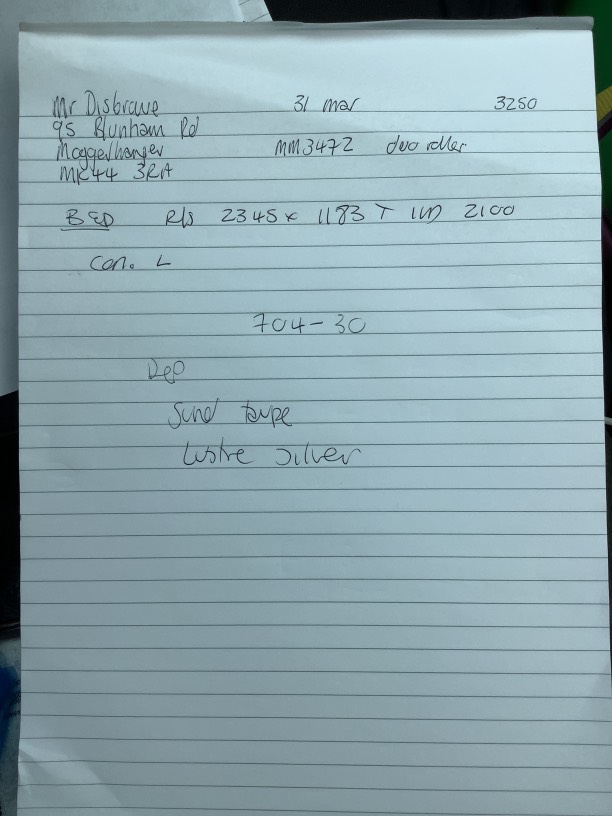 Mr Disbrowe 31 mar 3250
95 Blunham Rd
Moggerhanger MM3472 duo roller
MK44 3RA
BED R/s 2345 x 1183 T 2100
Con. L
704-30
Dep
Sund taupe
Lustre silver